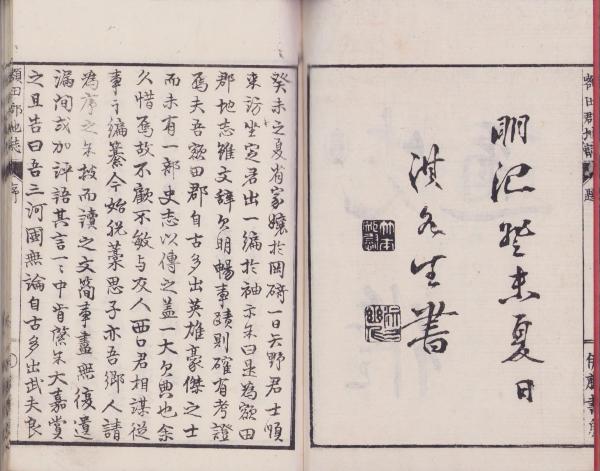 額田郡地誌 題
明治癸未夏日
淇水生書
癸未之夏省家孃於岡碕一日大野君士順
來訪坐定君出一編於袖示余曰是為額田
郡地志雖文辭欠明暢事蹟則確有考證
焉夫吾額田郡自古多出英雄豪傑之士
而未有一部史志以傳之蓋一大欠典也余
久惜焉故不顧不敏与友人西口君相謀從
事于編纂今始脱藁思子亦吾鄉人請
為序之余披而讀之文簡事盡無復遺
漏間或加評語其言一〻中肯綮余大嘉賞
之且告曰吾三河國無論自古多出武夫良
額田郡地誌 序